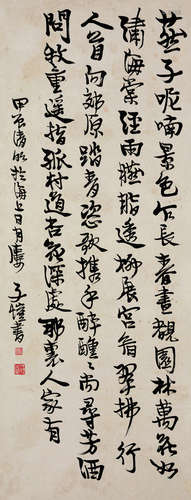 燕子呢喃景色乍長春晝覩園林萬花如
繡海棠經雨臙脂透柳展宮眉翠拂行
人首向郊原踏青恣歌攜手醉醺〻尚尋芳酒
問牧童遥指孤村道杏花深處那裏人家有
甲辰清明於海上日月樓
子愷書